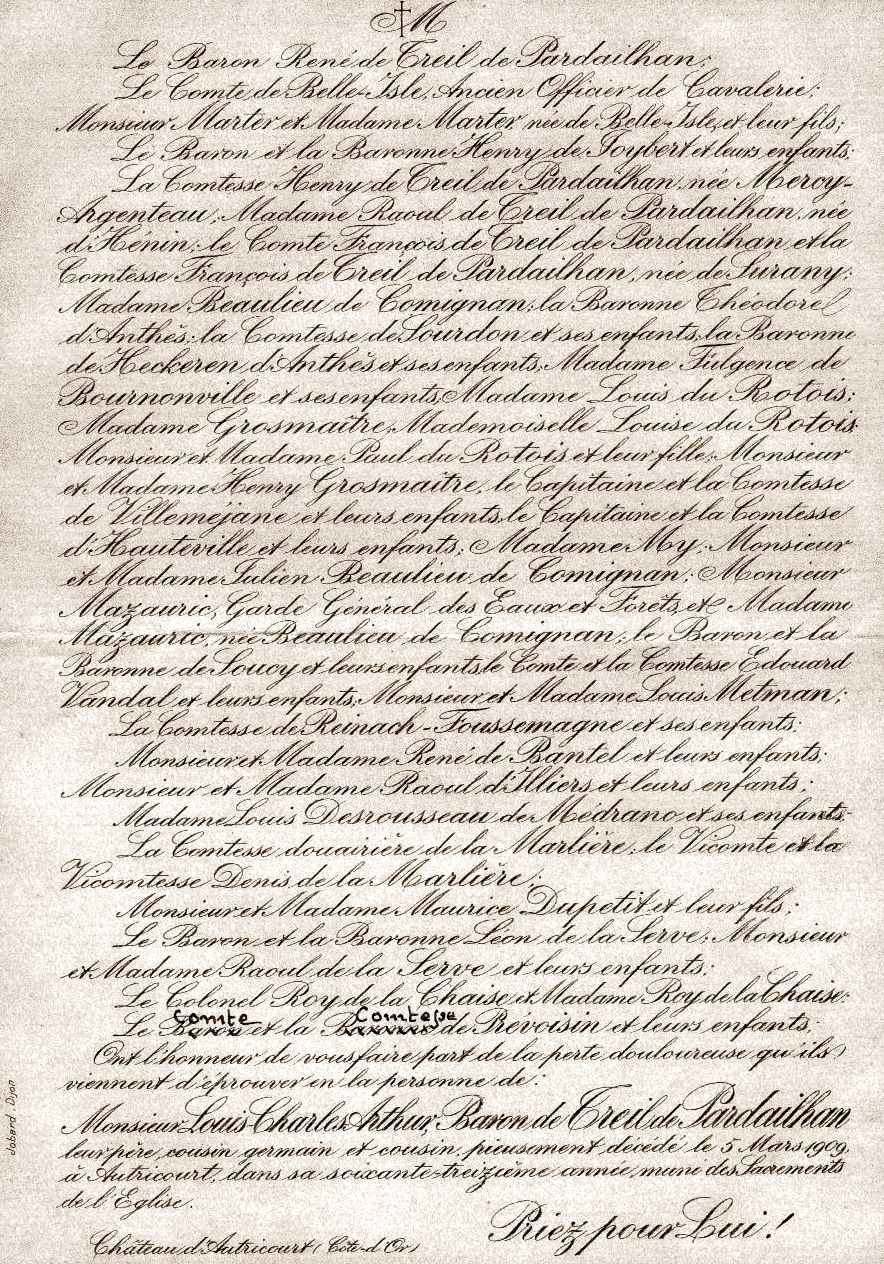 M
Le Baron René de Treil de Pardailhan;
Le Comte de Belle-Isle, Ancien Officier de Cavalerie;
Monsieur Marter et Madame Marter, née de Belle-Isle, et leur fils;
Le Baron et la Baronne Henry de Joybert et leurs enfants;
La Comtesse Henry de Treil de Pardailhan, née Mercy-
Argenteau; Madame Raoul de Treil de Pardailhan, née
d'Hénin; le Comte François de Treil de Pardailhan et la
Comtesse François de Treil de Pardailhan, née de Surany;
Madame Beaulieu de Comignan; la Baronne Théodore
d'Anthès; la Comtesse de Sourdon et ses enfants, la Baronne
de Heckeren d'Anthès et ses enfants, Madame Fulgence de
Bournonville et ses enfants, Madame Louis du Rotois;
Madame Grosmaître, Mademoiselle Louise du Rotois
Monsieur et Madame Paul du Rotois et leur fille; Monsieur
et Madame Henry Grosmaître, le Capitaine et la Comtesse
de Villeméjane et leurs enfants, le Capitaine et la Comtesse
d'Hauteville et leurs enfants; Madame My; Monsieur
et Madame Julien Beaulieu de Comignan; Monsieur
Mazauric, Garde Général des Eaux et Forêts, et Madame
Mazauric, née Beaulieu de Comignan; le Baron et la
Baronne de Soucy et leurs enfants, le Comte et la Comtesse Edouard
Vandal et leurs enfants; Monsieur et Madame Louis Metman;
La Comtesse de Reinach-Foussemagne et ses enfants;
Monsieur et Madame René de Bantel et leurs enfants;
Monsieur et Madame Raoul d'Illiers et leurs enfants;
Madame Louis Desrousseau de Médrano et ses enfants;
La Comtesse douairière de la Marlière; le Vicomte et la
Vicomtesse Denis de la Marlière;
Monsieur et Madame Maurice Dupetit et leur fils;
Le Baron et la Baronne Léon de la Serve; Monsieur
et Madame Raoul de la Serve et leurs enfants;
Le Colonel Roy de la Chaise et Madame Roy de la Chaise;
Comte Comtesse
Le Baron et la Baronne de Prévoisin et leurs enfants;
Ont l'honneur de vous faire part de la perte douloureuse qu'ils
viennent d'éprouver en la personne de:
Monsieur Louis-Charles Arthur, Baron de Treil de Pardailhan
leur père, cousin germain et cousin, pieusement décédé le 5 Mars 1909,
à Autricourt, dans sa soixante-treizième année, muni des Sacrements
de l'Eglise.
Priez pour Lui!
Château d'Autricourt (Côte-d'Or)
Jobard Dijon